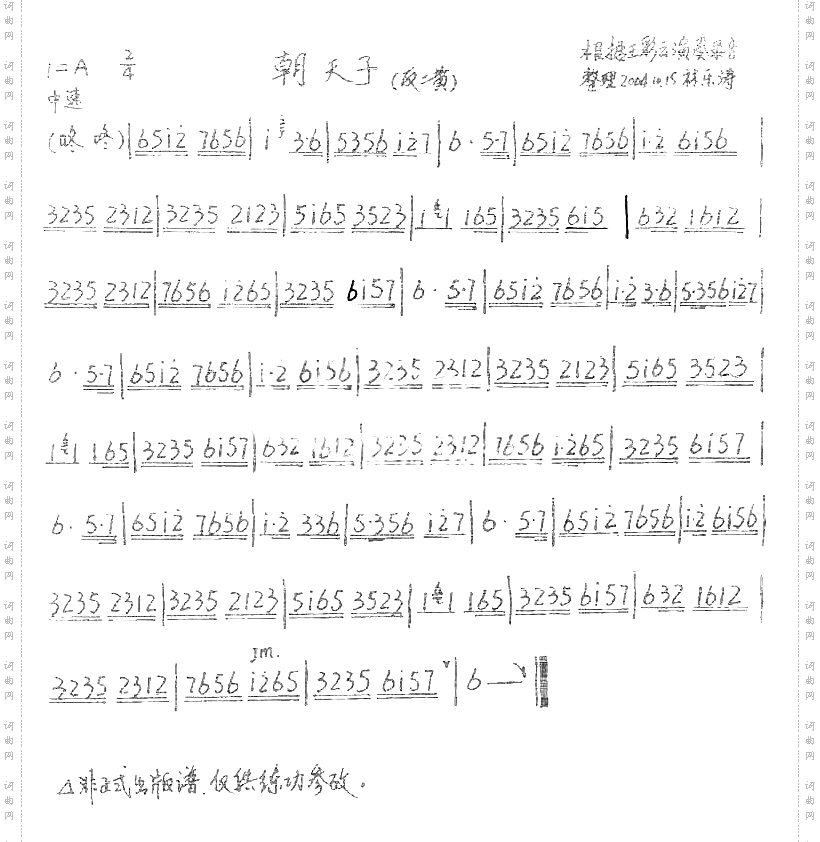 1=A 2/4 朝天子(反二黄) 根据王彩云演奏录音
中速 整理2004.10.15 林乐涛
(咚 咚)|65i̇2̇ 7656|i̇ 3·6|5356 i̇2̇7|6 · 5·7|65i̇2̇ 7656|i̇·2̇ 6i̇56|
3235 2312|3235 2123|5i̇65 3523|1 1 165|3235 6i̇5|632 1612|
3235 2312|7656 i̇2̇65|3235 6i̇57|6 · 5·7|65i̇2̇ 7656|i̇·2̇ 3·6|5·356i̇2̇7|
6 · 5·7|65i̇2̇ 7656|i̇·2̇ 6i̇56|3235 2312|3235 2123|5i̇65 3523|
1 1 165|3235 6i̇57|632 1612|3235 2312|7656 i̇·2̇65|3235 6i̇57|
6 · 5·7|65i̇2̇ 7656|i̇·2̇ 336|5·356 i̇2̇7|6 · 5·7|65i̇2̇ 7656|i̇·2̇ 6i̇56|
3235 2312|3235 2123|5i̇65 3523|1 1 165|3235 6i̇57|632 1612|
3235 2312|7656 i̇2̇65|3235 6i̇57|6
△非正式出版谱.仅供练功参考。
词曲网